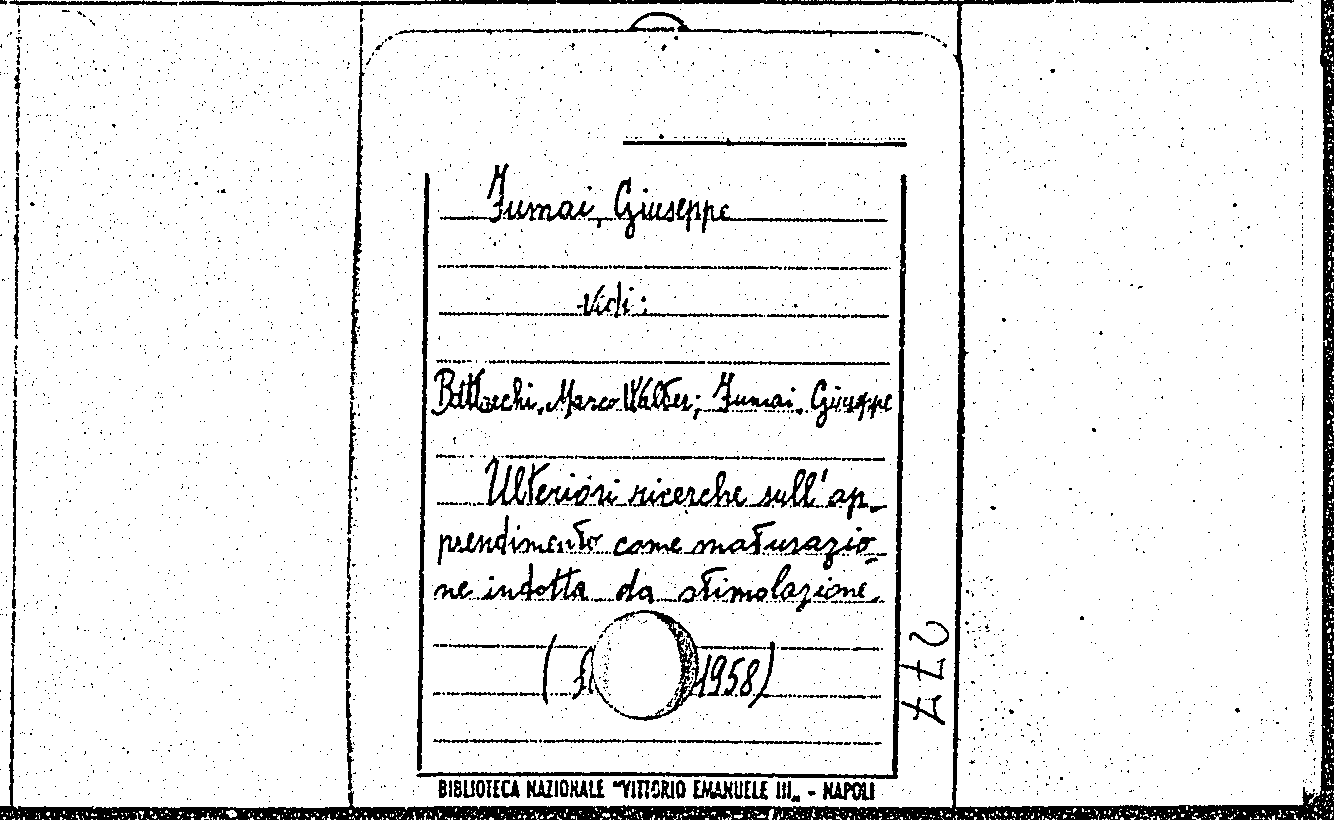 Fumai, Giuseppe
vedi:
Marco Walter; Fumai, Giuseppe
Ulteriori ricerche sull'ap-
prendimento come maturazio-
ne indotta da stimolazione.
( 1958)
277
BIBLIOTECA NAZIONALE "VITTORIO EMANUELE III„ - NAPOLI